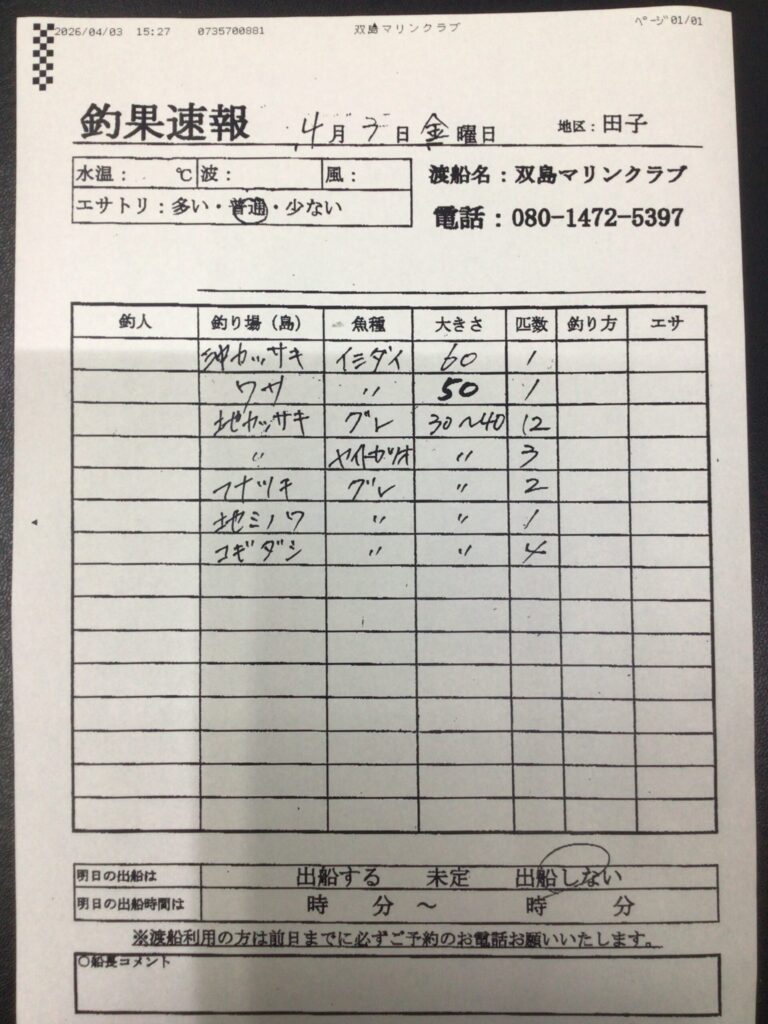 2026/04/03 15:27 0735700881 双島マリンクラブ ページ 01/01
釣果速報 4月3日金曜日 地区：田子
水温： ℃ 波： 風： 渡船名：双島マリンクラブ
エサトリ：多い・普通・少ない 電話：080-1472-5397
釣人 釣り場（島） 魚種 大きさ 匹数 釣り方 エサ
沖カッサキ イシダイ 60 1
ワサ 〃 50 1
地カッサキ グレ 30～40 12
〃 ヤイトカツオ 〃 3
フナツキ グレ 〃 2
地ミノワ 〃 〃 1
コギダシ 〃 〃 4
明日の出船は 出船する 未定 出船しない
明日の出船時間は 時 分 ～ 時 分
※渡船利用の方は前日までに必ずご予約のお電話お願いいたします。
○船長コメント